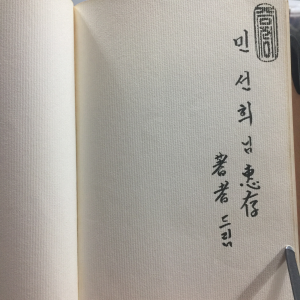 민선희님惠存
著者드림